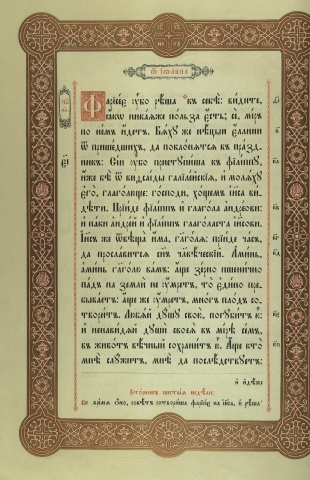 ѿ іѡанна
Фарісеє ᲂу҆̀бо рѣ́ша къ себѣ̀: ви́дите,
ꙗ҆́кѡ ника́ѧже по́льза є҆́сть; сѐ, мі́ръ
по не́мъ и҆́детъ. Бѧ́хꙋ же нѣ́цыи є҆́ллини
ѿ прише́дшихъ, да покло́нѧтсѧ въ пра́зд
никъ: Сі́и ᲂу҆̀бо пристꙋпи́ша къ фїлі́ппꙋ,
и҆́же бѣ̀ ѿ виѳсаі́ды галїле́йскїѧ, и҆ молѧ́хꙋ
є҆го̀, глаго́люще: го́споди, хо́щемъ і҆и҃са ви
дѣ́ти. Прїи́де фїлі́ппъ и҆ глаго́ла а҆ндре́ови:
и҆ па́ки а҆ндре́й и҆ фїлі́ппъ глаго́ласта і҆и҃сови.
І҆и҃съ же ѿвѣща̀ и҆́ма, гл҃ѧ: прїи́де ча́съ,
да просла́витсѧ сн҃ъ чл҃вѣ́ческїй. А҆ми́нь,
а҆ми́нь гл҃го́лю ва́мъ: а҆́ще зерно̀ пшени́чно
па́дъ на землѝ не ᲂу҆́мретъ, то̀ є҆ди́но пре
быва́етъ: а҆́ще же ᲂу҆́мретъ, мно́гъ пло́дъ со
твори́тъ. Любѧ́й дꙋ́шꙋ свою̀, погꙋби́тъ ю҆̀:
и҆ ненави́дѧй дꙋшѝ своеѧ̀ въ мі́рѣ се́мъ,
въ живо́тъ вѣ́чный сохрани́тъ ю҆̀. А҆́ще кто̀
мнѣ̀ слꙋ́житъ, мнѣ̀ да послѣ́дствꙋетъ:
и҆ и҆дѣ́же
Во вре́мѧ ѻ҆́но, совѣ́тъ сотвори́ша фарісе́є на і҆и҃са, и҆ рѣ́ша